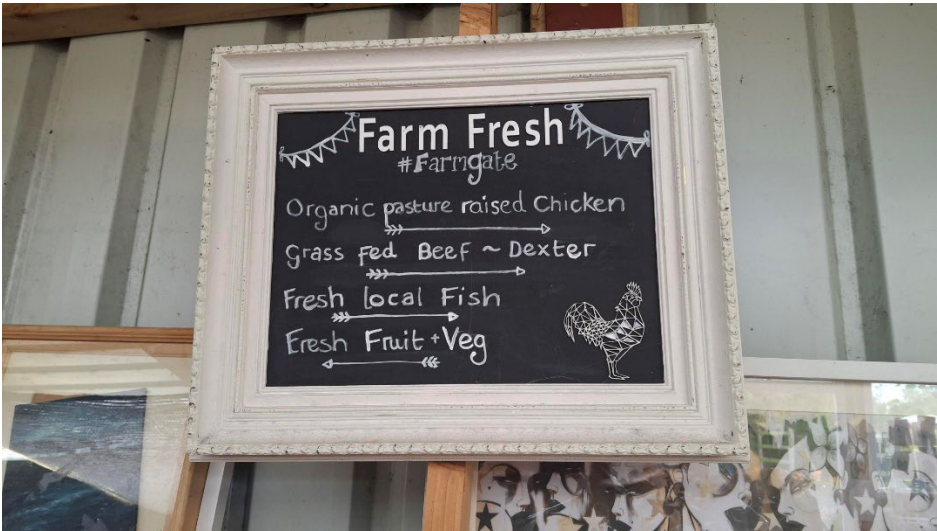 Farm Fresh
#Farmgate
Organic pasture raised Chicken
Grass fed Beef ~ Dexter
Fresh local Fish
Fresh Fruit + Veg